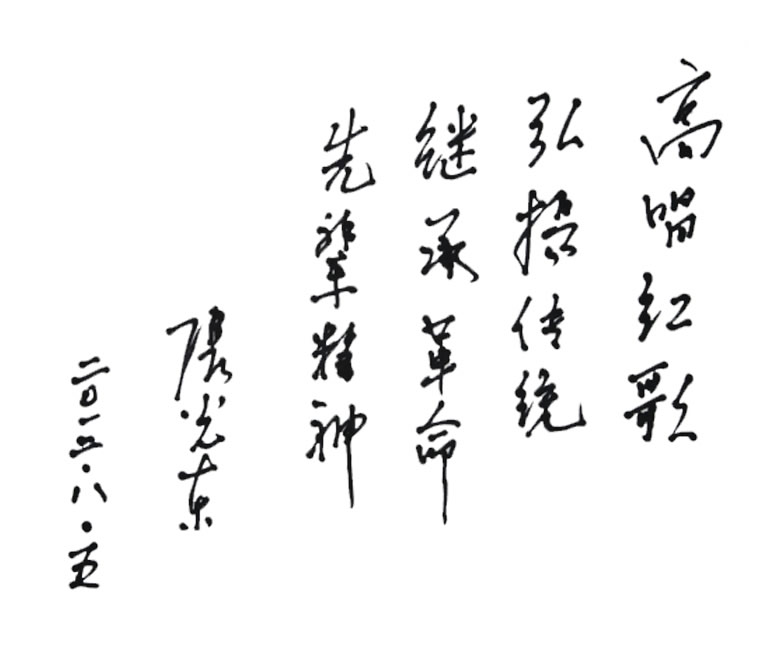 高唱红歌
弘扬传统
继承革命
先辈精神
光东
二〇一五·八·五